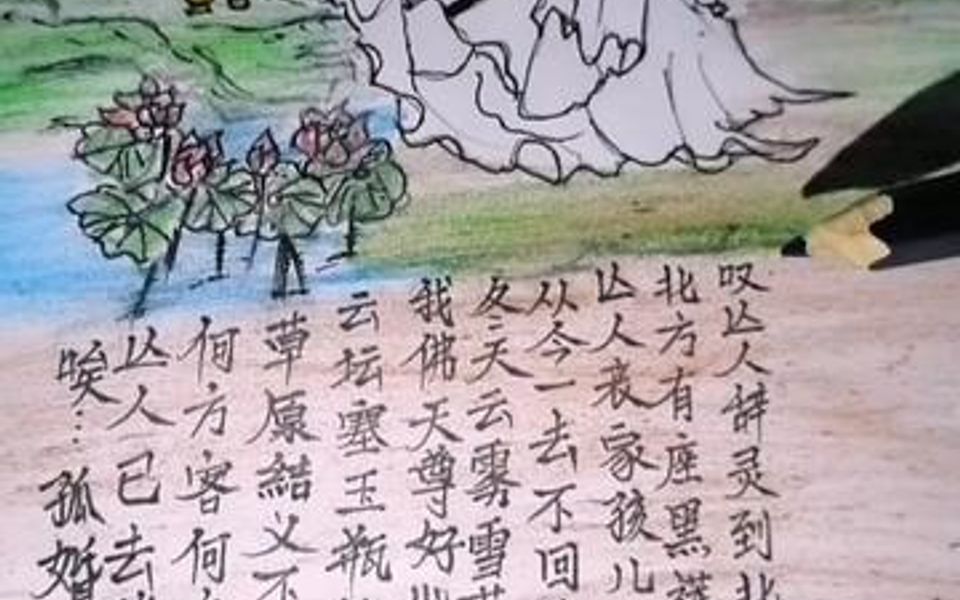 叹亾人辞灵到北
北方有座黑
亾人家孩儿
从今一去不回
冬天云雾雪
我佛天尊好
云坛塞玉瓶
草原結义不
何方客何
亾人已去
唉…孤